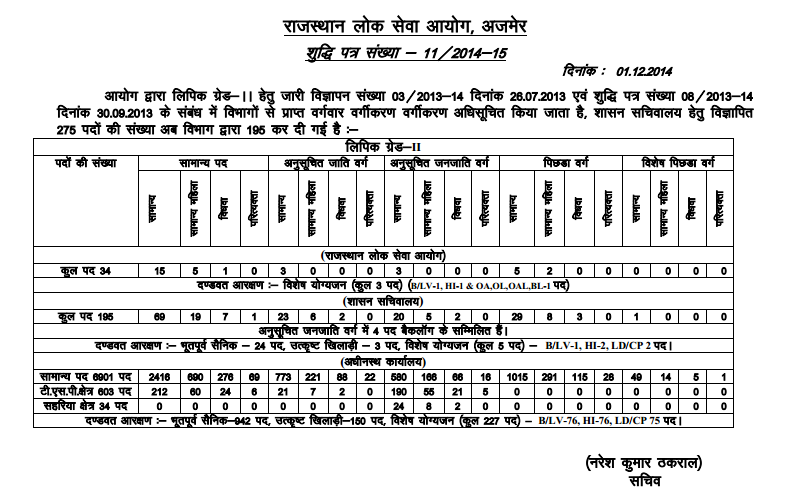 राजस्थान लोक सेवा आयोग, अजमेर
शुद्धि पत्र संख्या – 11/2014–15
दिनांक : 01.12.2014
आयोग द्वारा लिपिक ग्रेड–II हेतु जारी विज्ञापन संख्या 03/2013–14 दिनांक 26.07.2013 एवं शुद्धि पत्र संख्या 08/2013–14
दिनांक 30.09.2013 के संबंध में विभागों से प्राप्त वर्गवार वर्गीकरण वर्गीकरण अधिसूचित किया जाता है, शासन सचिवालय हेतु विज्ञापित
275 पदों की संख्या अब विभाग द्वारा 195 कर दी गई है :–
लिपिक ग्रेड–II
पदों की संख्या सामान्य पद अनुसूचित जाति वर्ग अनुसूचित जनजाति वर्ग पिछडा वर्ग विशेष पिछडा वर्ग
सामान्य सामान्य महिला विधवा परित्यक्ता सामान्य सामान्य महिला विधवा परित्यक्ता सामान्य सामान्य महिला विधवा परित्यक्ता सामान्य सामान्य महिला विधवा परित्यक्ता सामान्य सामान्य महिला विधवा परित्यक्ता
(राजस्थान लोक सेवा आयोग)
कुल पद 34 15 5 1 0 3 0 0 0 3 0 0 0 5 2 0 0 0 0 0 0
दण्डवत आरक्षण :– विशेष योग्यजन (कुल 3 पद) (B/LV-1, HI-1 & OA,OL,OAL,BL-1 पद)
(शासन सचिवालय)
कुल पद 195 69 19 7 1 23 6 2 0 20 5 2 0 29 8 3 0 1 0 0 0
अनुसूचित जनजाति वर्ग में 4 पद बैकलॉग के सम्मिलित हैं।
दण्डवत आरक्षण :– भूतपूर्व सैनिक – 24 पद, उत्कृष्ट खिलाड़ी – 3 पद, विशेष योग्यजन (कुल 5 पद) – B/LV-1, HI-2, LD/CP 2 पद।
(अधीनस्थ कार्यालय)
सामान्य पद 6901 पद 2416 690 276 69 773 221 88 22 580 166 66 16 1015 291 115 28 49 14 5 1
टी.एस.पी.क्षेत्र 603 पद 212 60 24 6 21 7 2 0 190 55 21 5 0 0 0 0 0 0 0 0
सहरिया क्षेत्र 34 पद 0 0 0 0 0 0 0 0 24 8 2 0 0 0 0 0 0 0 0
दण्डवत आरक्षण :– भूतपूर्व सैनिक–942 पद, उत्कृष्ट खिलाड़ी–150 पद, विशेष योग्यजन (कुल 227 पद) – B/LV-76, HI-76, LD/CP 75 पद।
(नरेश कुमार ठकराल)
सचिव